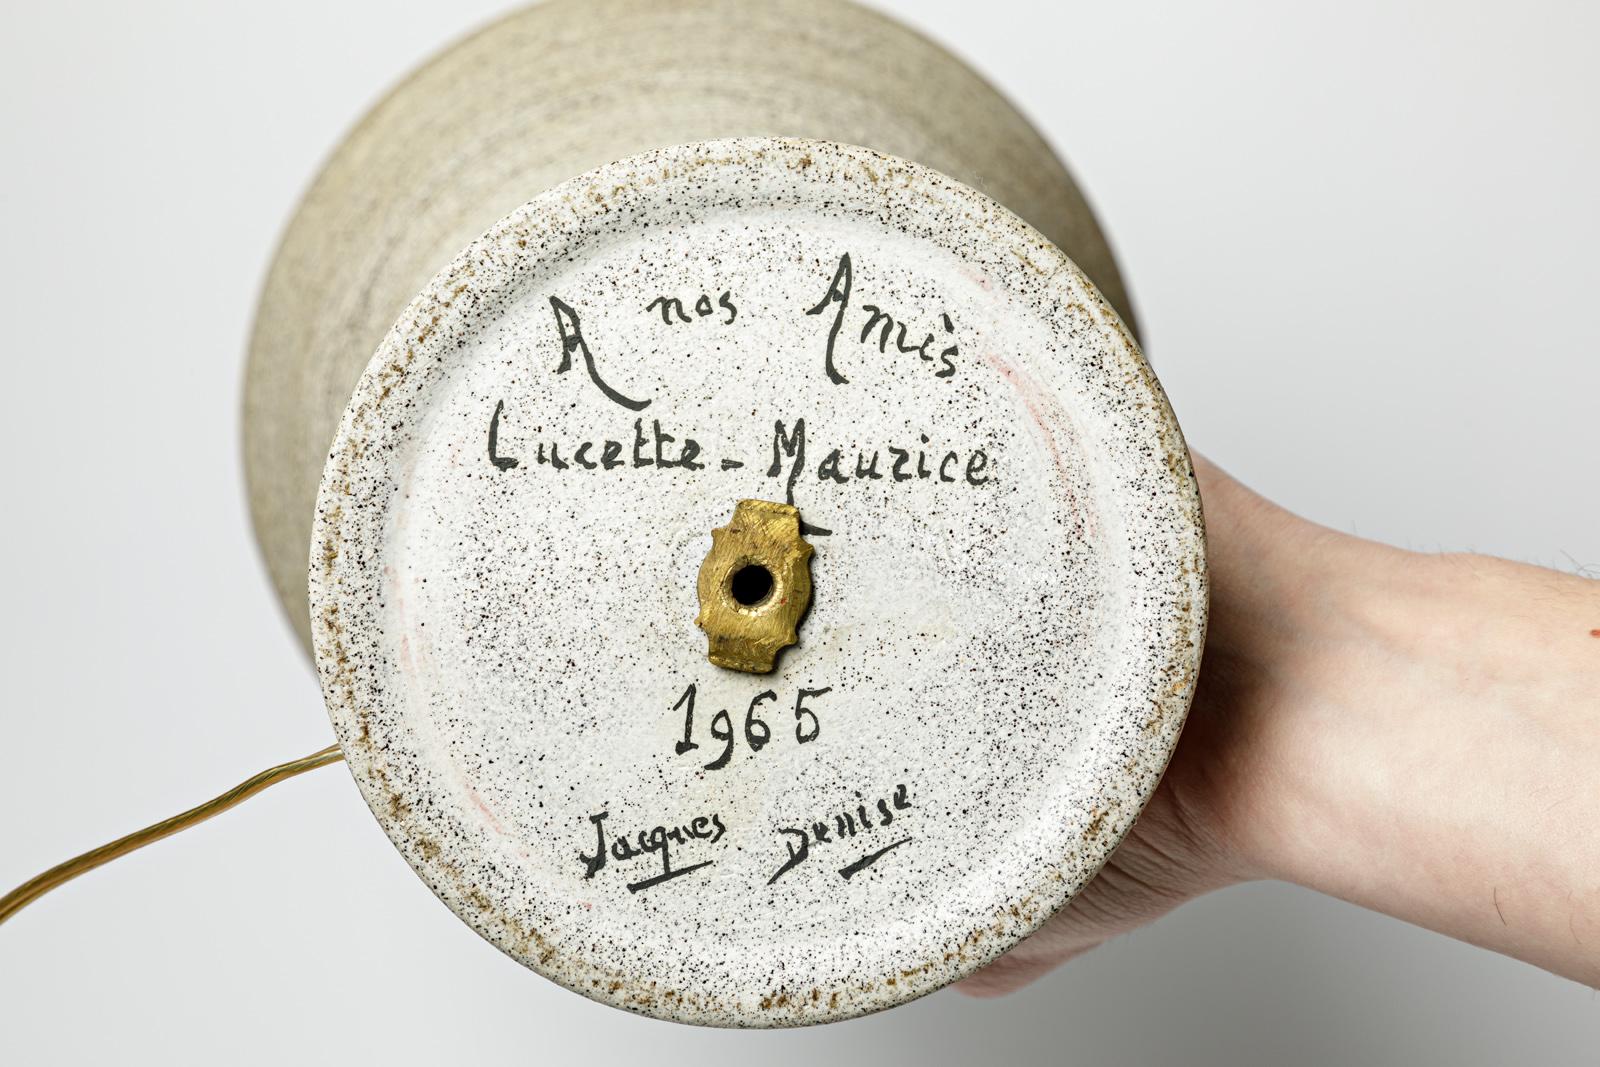 A nos Amis
Lucette - Maurice
1965
Jacques Denise